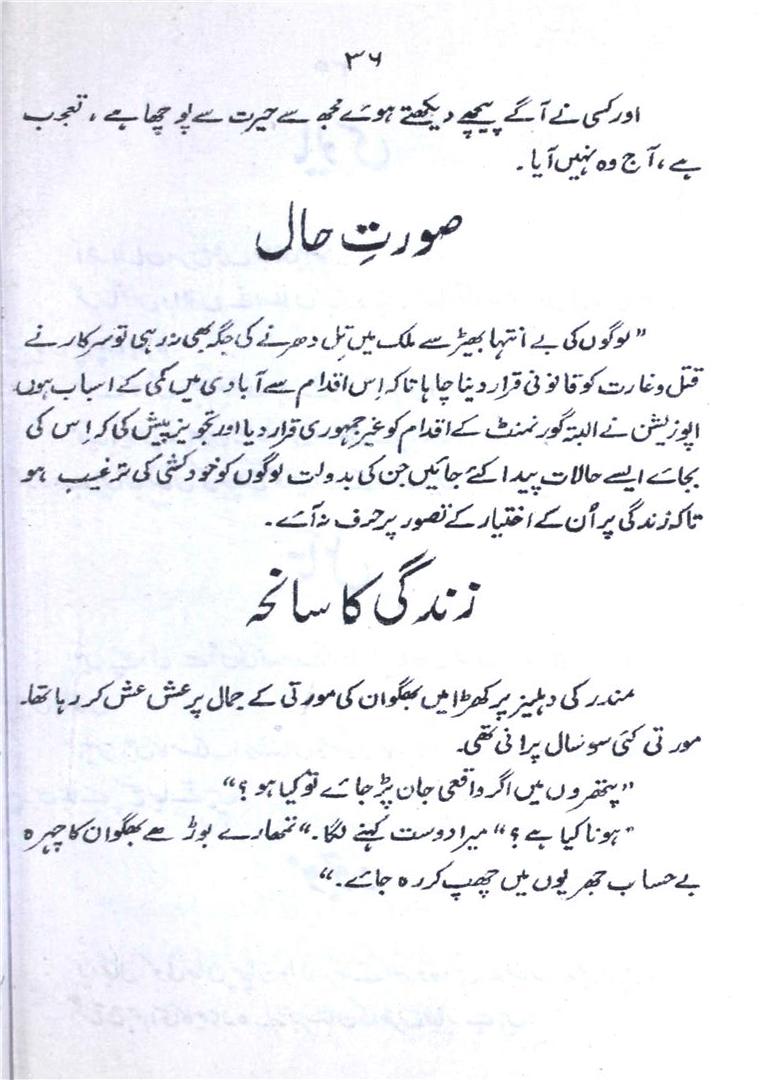 ۳۶
اور کسی نے آگے پیچھے دیکھتے ہوئے مجھ سے حیرت سے پوچھا ہے، تعجب
ہے، آج وہ نہیں آیا۔
صورتِ حال
”لوگوں کی بے انتہا بھیڑ سے ملک میں تِل دھرنے کی جگہ بھی نہ رہی تو سرکار نے
قتل و غارت کو قانونی قرار دینا چاہا تاکہ اِس اقدام سے آبادی میں کمی کے اسباب ہوں۔
اپوزیشن نے البتہ گورنمنٹ کے اقدام کو غیر جمہوری قرار دیا اور تجویز پیش کی کہ اِس کی
بجائے ایسے حالات پیدا کئے جائیں جن کی بدولت لوگوں کو خودکشی کی ترغیب ہو
تاکہ زندگی پر اُن کے اختیار کے تصور پر حرف نہ آئے۔
زندگی کا سانحہ
مندر کی دہلیز پر کھڑا میں بھگوان کی مورتی کے جمال پر عش عش کر رہا تھا۔
مورتی کئی سو سال پرانی تھی۔
”پتھروں میں اگر واقعی جان پڑ جائے تو کیا ہو؟“
”ہونا کیا ہے؟“ میرا دوست کہنے لگا۔ ”تمھارے بوڑھے بھگوان کا چہرہ
بے حساب جھریوں میں چھپ کر رہ جائے۔“